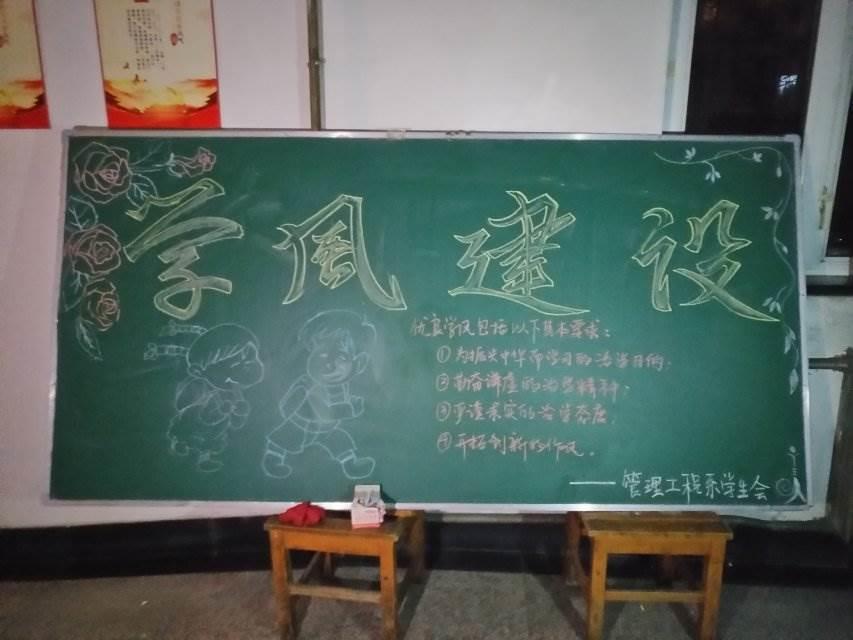 学風建设
优良学风包括以下基本要求：
①为振兴中华而学习的治学目的.
②勤奋谦虚的治学精神.
③严谨求实的治学态度.
④开拓创新的作风.
——管理工程系学生会